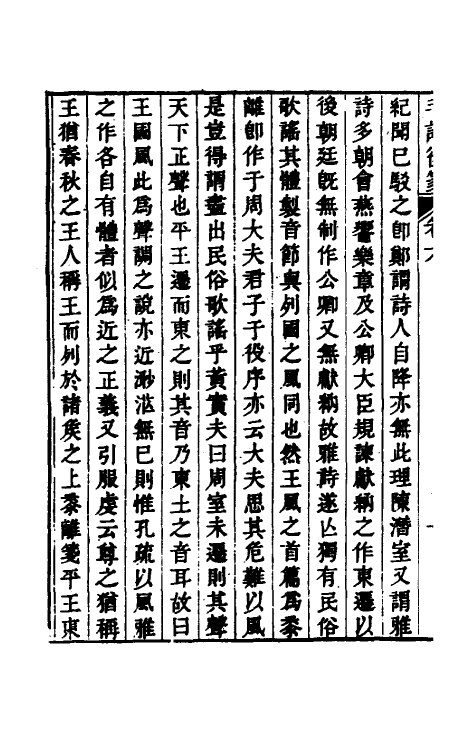 毛詩後箋 卷六
紀聞已駁之卽鄭謂詩人自降亦無此理陳潛室又謂雅
詩多朝會燕饗樂章及公卿大臣規諫獻納之作東遷以
後朝廷旣無制作公卿又無獻納故雅詩遂亾獨有民俗
歌謠其體製音節與列國之風同也然王風之首篇爲黍
離卽作于周大夫君子于役序亦云大夫思其危難以風
是豈得謂盡出民俗歌謠乎黃實夫曰周室未遷則其聲
天下正聲也平王遷而東之則其音乃東土之音耳故曰
王國風此爲聲調之說亦近渺茫無已則惟孔疏以風雅
之作各自有體者似爲近之正義又引服虔云尊之猶稱
王猶春秋之王人稱王而列於諸矦之上黍離箋平王東